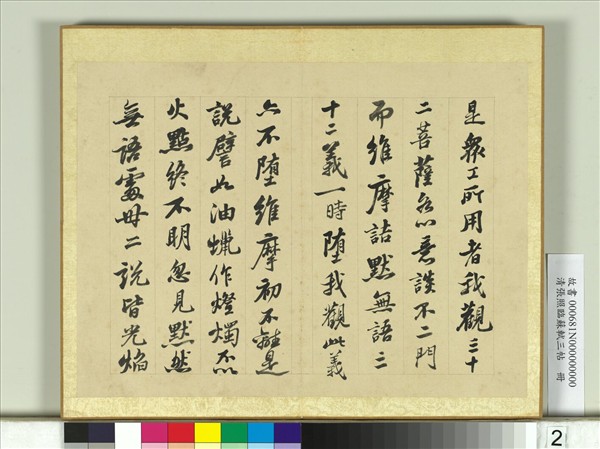 是衆工所用者我觀三十
二菩薩各以意談不二門
而維摩詰默無語三
十二義一時堕我觀此義
亦不堕維摩初不離是
說譬如油蠟作燈燭不以
火點終不明忽見默然
無語處卅二說皆光焰
故書 000681N000000000
清張照臨蘇軾三帖 冊
2